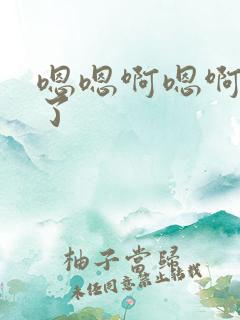 嗯嗯啊嗯啊
了
柚子當歸
未经同意禁止转载